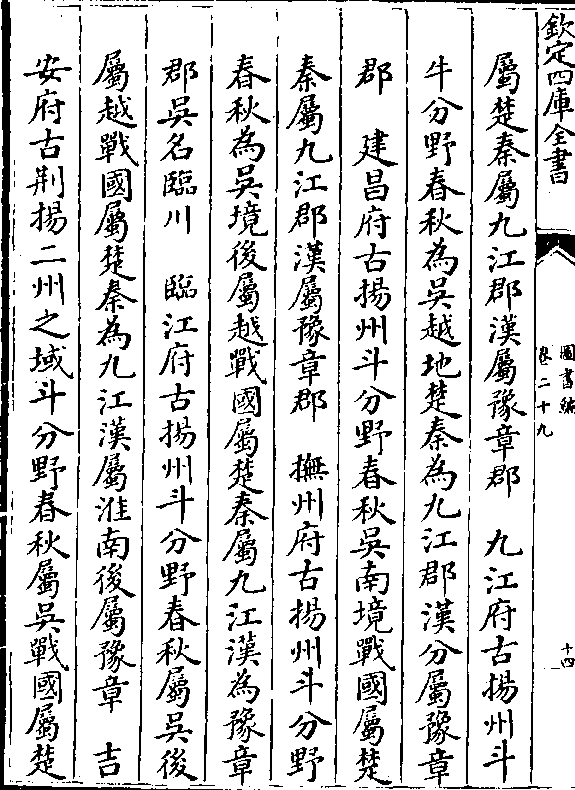 欽定四庫全書
圖書編
卷二十九
十四
屬楚秦屬九江郡漢屬豫章郡　九江府古揚州斗
牛分野春秋為吳越地楚秦為九江郡漢分屬豫章
郡　建昌府古揚州斗分野春秋吳南境戰國屬楚
秦屬九江郡漢屬豫章郡　撫州府古揚州斗分野
春秋為吳境後屬越戰國屬楚秦屬九江漢為豫章
郡吳名臨川　臨江府古揚州斗分野春秋屬吳後
屬越戰國屬楚秦為九江漢屬淮南後屬豫章　吉
安府古荆揚二州之域斗分野春秋屬吳戰國屬楚